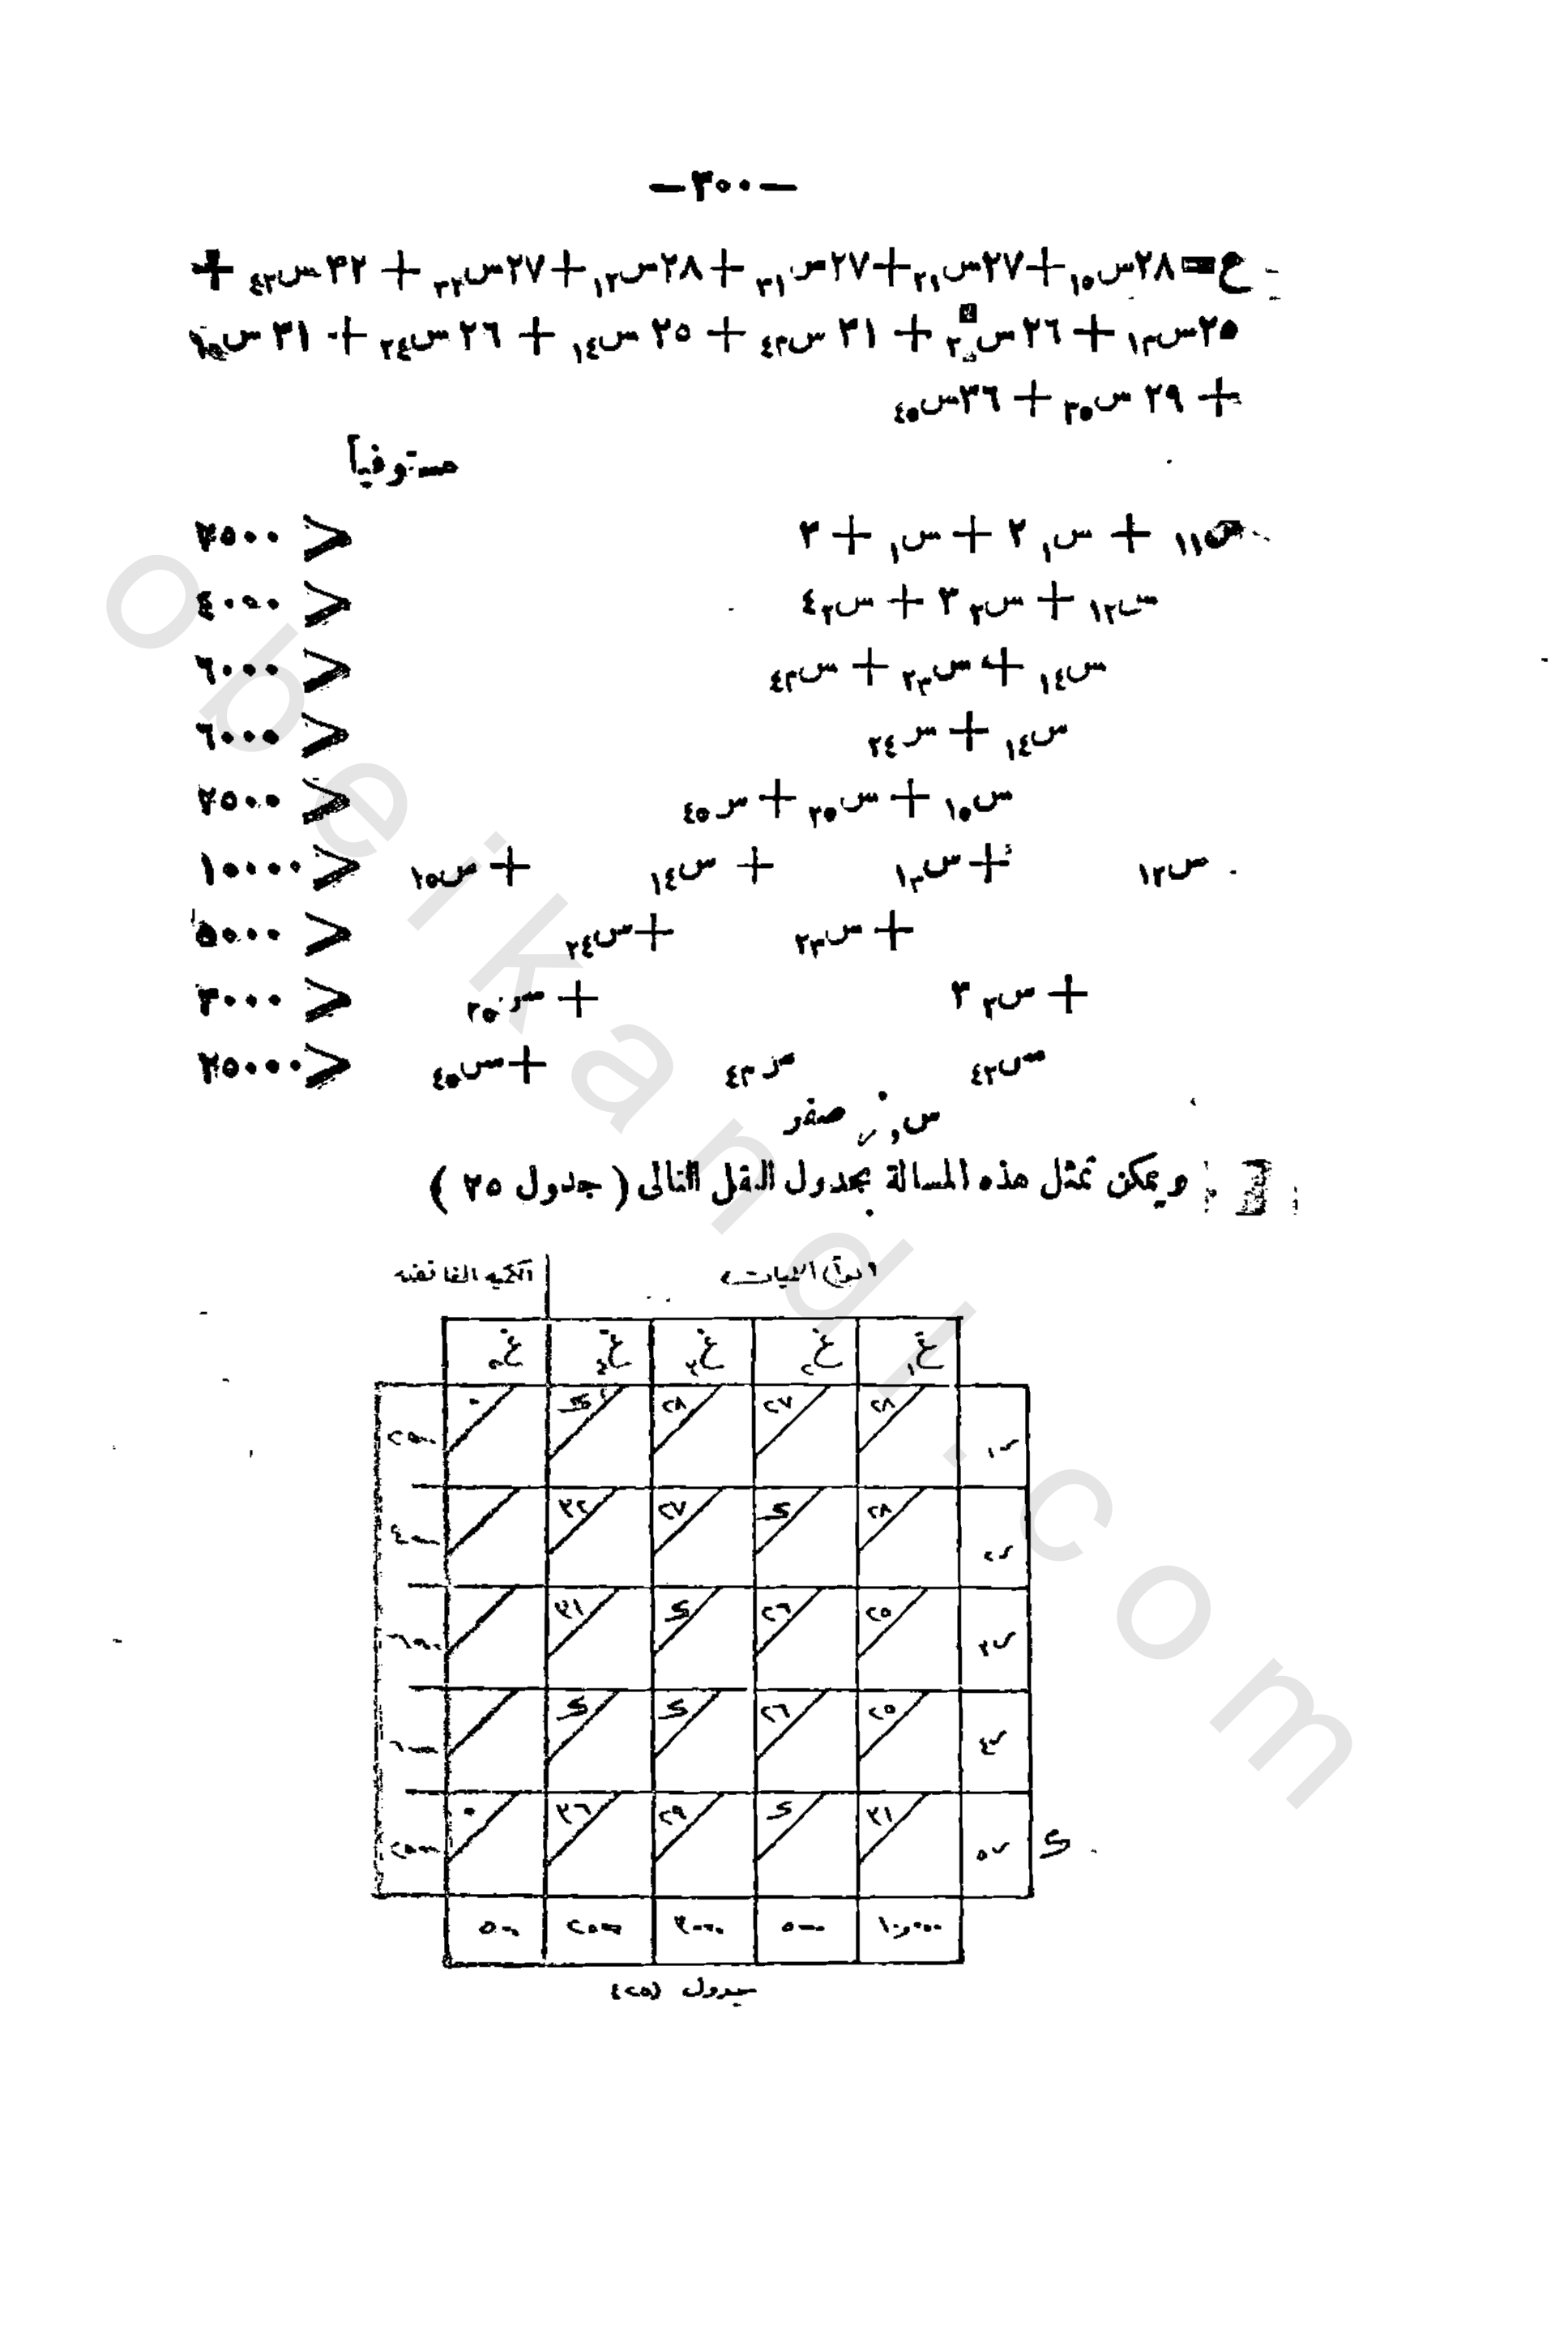 —٣٠٠—
ع=٢٨س١٥+٢٧س٢١+٢٧س٣١+٢٨س١٢+٢٧س٣٢+٣٢س٤٢+
٢٥س١٣+٢٦س٢+٣١س٤٣+٢٥س١٤+٢٦س٢٤+٣١س١٥
+٢٩س٣٥+٣٦س٤٥
مستوفياً
س١١+س١ ٢+س١+٣ > ٢٥٠٠
س١٢+س٢ ٣+س٤٢ > ٤٠٠٠
س١٤+س٢٣+س٤٣ > ٦٠٠٠
س١٤+س٢٤ > ٦٠٠٠
س١٥+س٣٥+س٤٥ > ٢٥٠٠
س١٢ +س١٣ +س١٤ +س١٥ > ١٠٠٠٠
+س٢٣ +س٢٤ > ٥٠٠٠
+س٢ ٣ +س٣٥ > ٣٠٠٠
س٤٢ س٤٣ +س٤٥ > ٢٥٠٠٠
س, صفر
ويمكن تمثل هذه المسالة بجدول النقل التالى ( جدول ٢٥ )
الكميه الفائضه
غ١ غ٢ غ٣ غ٤ غ٥
س١ ٢٨ ٢٧ ٢٨ ك ٠ ٢٥٠٠
س٢ ٢٨ ك ٢٧ ٣٢ ٤٠٠٠
س٣ ٢٥ ٢٦ ك ٣١ ٦٠٠٠
س٤ ٢٥ ٢٦ ك ك ٦٠٠٠
ك س٥ ٣١ ك ٢٩ ٣٦ ٠ ٢٥٠٠
١٠٠٠٠ ٥٠٠٠ ٣٠٠٠ ٢٥٠٠ ٥٠٠
جدول (٢٥)
obeikandl.com